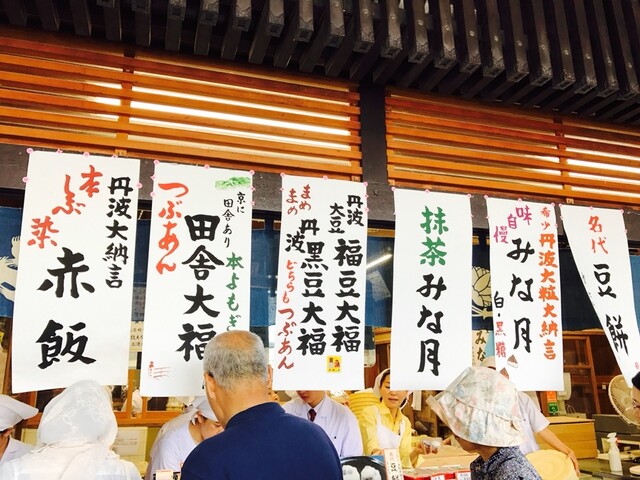 名代
豆餅
希少丹波大粒大納言
味自慢
みな月
白・黒
抹茶みな月
丹波
大豆
福豆大福
まめまめ
丹波
黒豆大福
どちらもつぶあん
京に
田舎あり
本よもぎ
田舎大福
つぶあん
丹波大納言
本しぶ染
赤飯